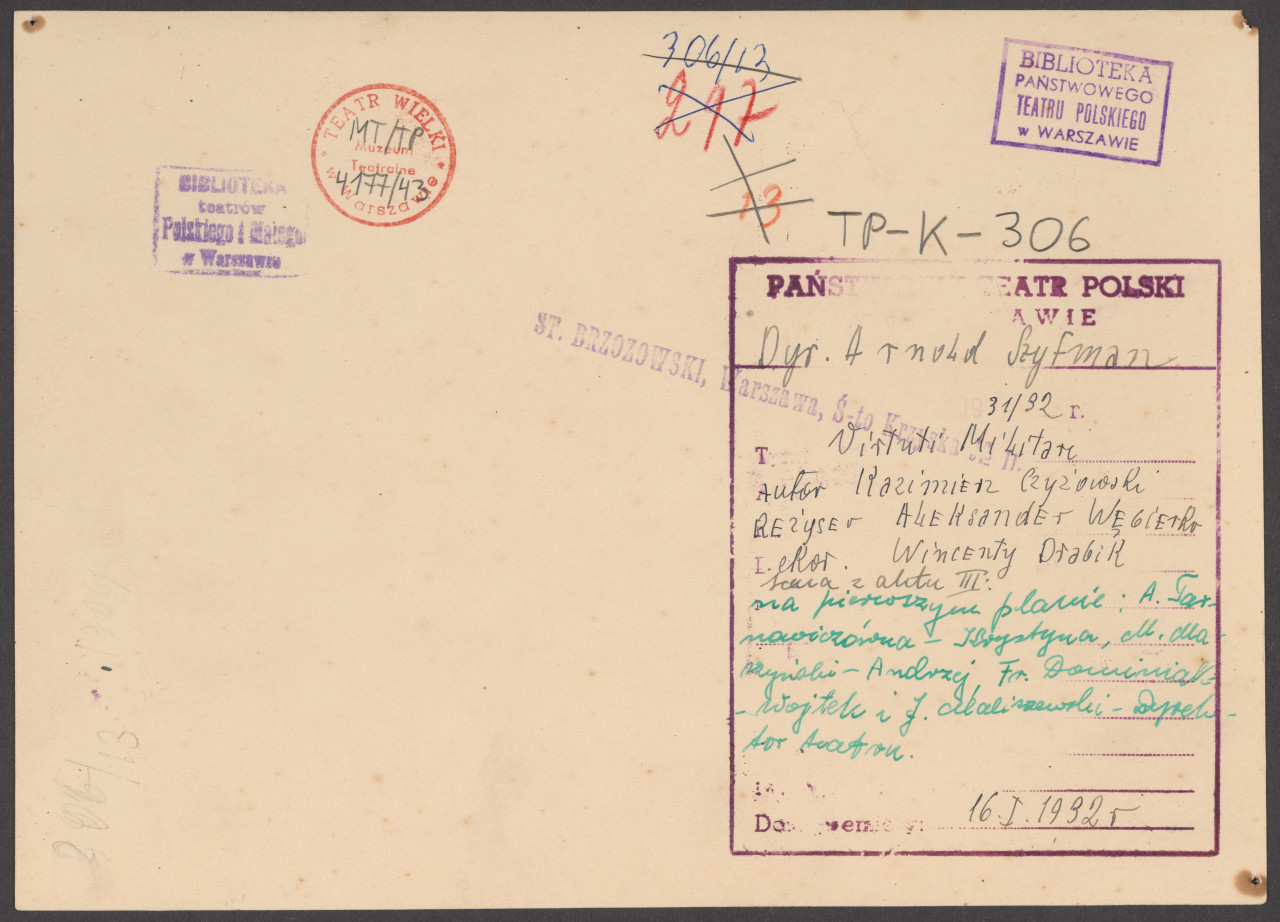 306/13
217
13
BIBLIOTEKA
PAŃSTWOWEGO
TEATRU POLSKIEGO
w WARSZAWIE
TEATR WIELKI
MT/TP
Muzeum
Teatralne
4177/43
w Warszawie
BIBLIOTEKA
teatrów
Polskiego i Małego
w Warszawie
TP-K-306
ST. BRZOZOWSKI, Warszawa, Ś-to Krzyska
PAŃST TEATR POLSKI
AWIE
Dyr. Arnold Szyfman
1931/32 r.
Virtuti Militari
Autor Kazimierz Czyżowski
REżyser Aleksander Węgierko
Dekor. Wincenty Drabik
scena z aktu III:
na pierwszym planie: A. Tar-
nawiczówna - Krystyna, M. Ma-
szyński - Andrzej, Fr. Dominiak
- Wojtek i J. Maliszewski - Dyrek-
tor teatru.
16.I.1932 r
306/13